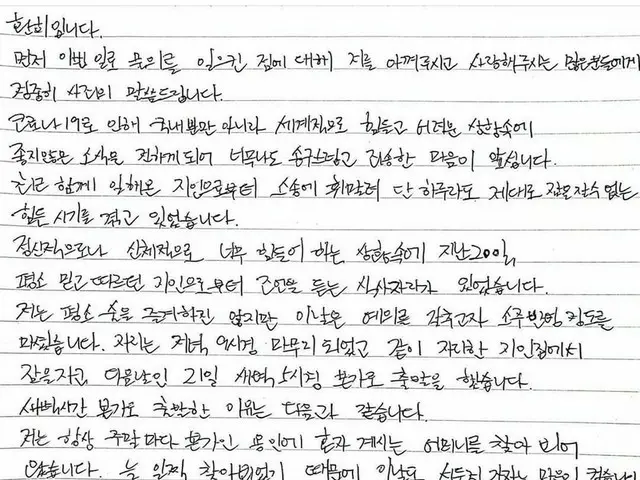 환희입니다.
먼저 이번 일로 물의를 일으킨 점에 대해 저를 아껴주시고 사랑해주시는 많은분들에게
정중히 사죄의 말씀드립니다.
코로나19로 인해 국내뿐만 아니라 세계적으로 힘들고 어려운 상황속에
좋지않은 소식을 전하게되어 너무나도 송구스럽고 죄송한 마음이 앞섭니다.
최근 함께 일해온 지인으로부터 소송에 휘말려 단 하루라도 제대로 잠을잘수없는
힘든 시기를 겪고 있었습니다.
정신적으로나 신체적으로 너무 힘들어 하는 상황속에 지난20일,
평소 믿고 따르던 지인으로부터 조언을 듣는 식사자리가 있었습니다.
저는 평소 술을 즐겨하진 않지만 이날은 예의를 갖추고자 소주반병 정도를
마셨습니다. 자리는 저녁 9시경 마무리되었고 같이 자리한 지인집에서
잠을자고 다음날인 21일 새벽 5시경 본가로 출발을 했습니다.
새벽시간 본가로 출발한 이유는 다음과 같습니다.
저는 항상 주말마다 본가인 용인에 혼자 계시는 어머니를 찾아 뵈어
왔습니다. 늘 일찍 찾아뵈었기 때문에 이날도 서두르고자는 마음이 컸습니다